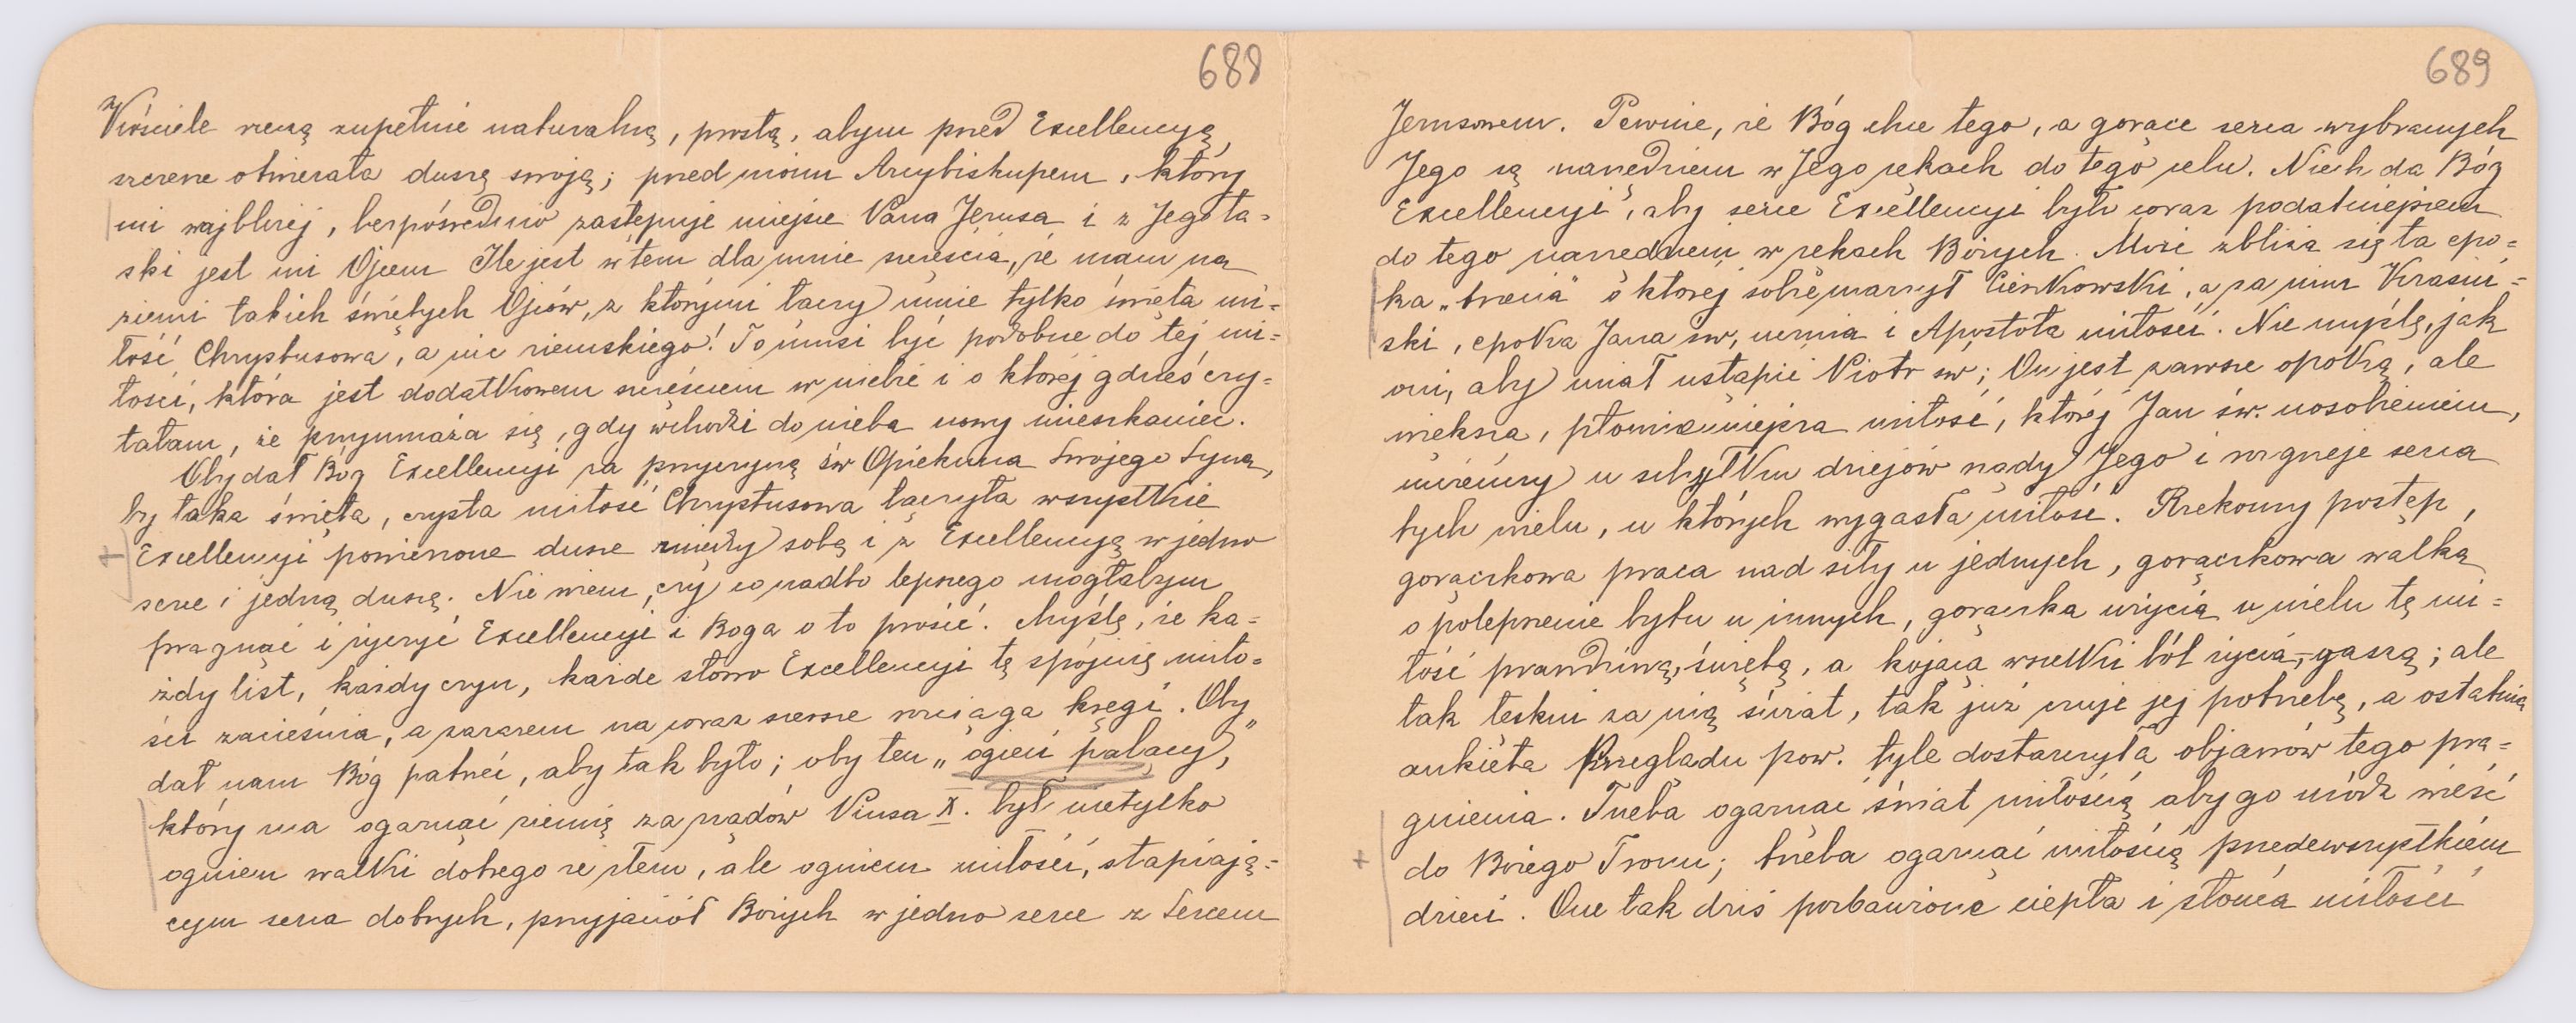 688
Kościele rzeczą zupełnie naturalną, prostą, abym przed Excellencyą,
szczerze otwierała duszę swoją; przed moim Arcybiskupem, który
mi najbliżej, bezpośrednio zastępuje miejsce Pana Jezusa i z Jego ła-
ski jest mi Ojcem Ile jest w tem dla mnie szczęścia, że mam na
ziemi takich świętych Ojców, z którymi łączy mnie tylko święta mi-
łość Chrystusowa, a nic ziemskiego! To musi być podobne do tej mi-
łości, która jest dodatkowem szczęściem w niebie i o której gdzieś czy-
tałam, że przymnaża się, gdy wchodzi do nieba nowy mieszkaniec.
Oby dał Bóg Excellencyi za przyczyną św Opiekuna Swojego Syna,
by taka święta, czysta miłość Chrystusowa łączyła wszystkie
Excellencyi powierzone dusze między sobą i z Excellencyą w jedno
serce i jedną duszę. Nie wiem, czy co nadto lepszego mogłabym
pragnąć i życzyć Excellencyi i Boga o to prosić. Myślę, że ka-
żdy list, każdy czyn, każde słowo Excellencyi tę spójnię miło-
ści zacieśnia, a zarazem na coraz szersze rozciąga kręgi. Oby
dał nam Bóg patrzeć, aby tak było; oby ten „ogień pałący,"
który ma ogarnąć ziemię za rządów Piusa X. był nietylko
ogniem walki dobrego ze złem, ale ogniem miłości, stapiają-
cym serca dobrych, przyjaciół Bożych w jedno serce z Sercem
689
Jezusowem. Pewnie, że Bóg chce tego, a gorące serca wybranych
Jego są narzędziem w Jego rękach do tego celu. Niech da Bóg
Excellencyi, aby serce Excellencyi było coraz podatniejszem
do tego narzędziem w rękach Bożych. Może zbliża się ta epo-
ka „trzecia" o której sobie marzył Cieszkowski, a za nim Krasiń-
ski, epoka Jana św, ucznia i Apostoła miłości. Nie myślę, jak
oni, aby miał ustąpić Piotr św; On jest zawsze opoką, ale
większa, płomienniejsza miłość, której Jan św. uosobieniem,
uwieńczy u schyłku dziejów rządy Jego i rozgrzeje serca
tych wielu, u których wygasła miłość. Rzekomy postęp,
gorączkowa praca nad siły u jednych, gorączkowa walka
o polepszenie bytu u innych, gorączka użycia u wielu tę mi-
łość prawdziwą, świętą, a kojącą wszelki ból życia, gaszą; ale
tak tęskni za nią świat, tak już czuje jej potrzebę, a ostatnia
ankieta Przeglądu pow. tyle dostarczyła objawów tego pra-
gnienia. Trzeba ogarnąć świat miłością aby go módz nieść
do Bożego Tronu; trzeba ogarnąć miłością przedewszystkiem
dzieci. One tak dziś pozbawione ciepła i słońca miłości